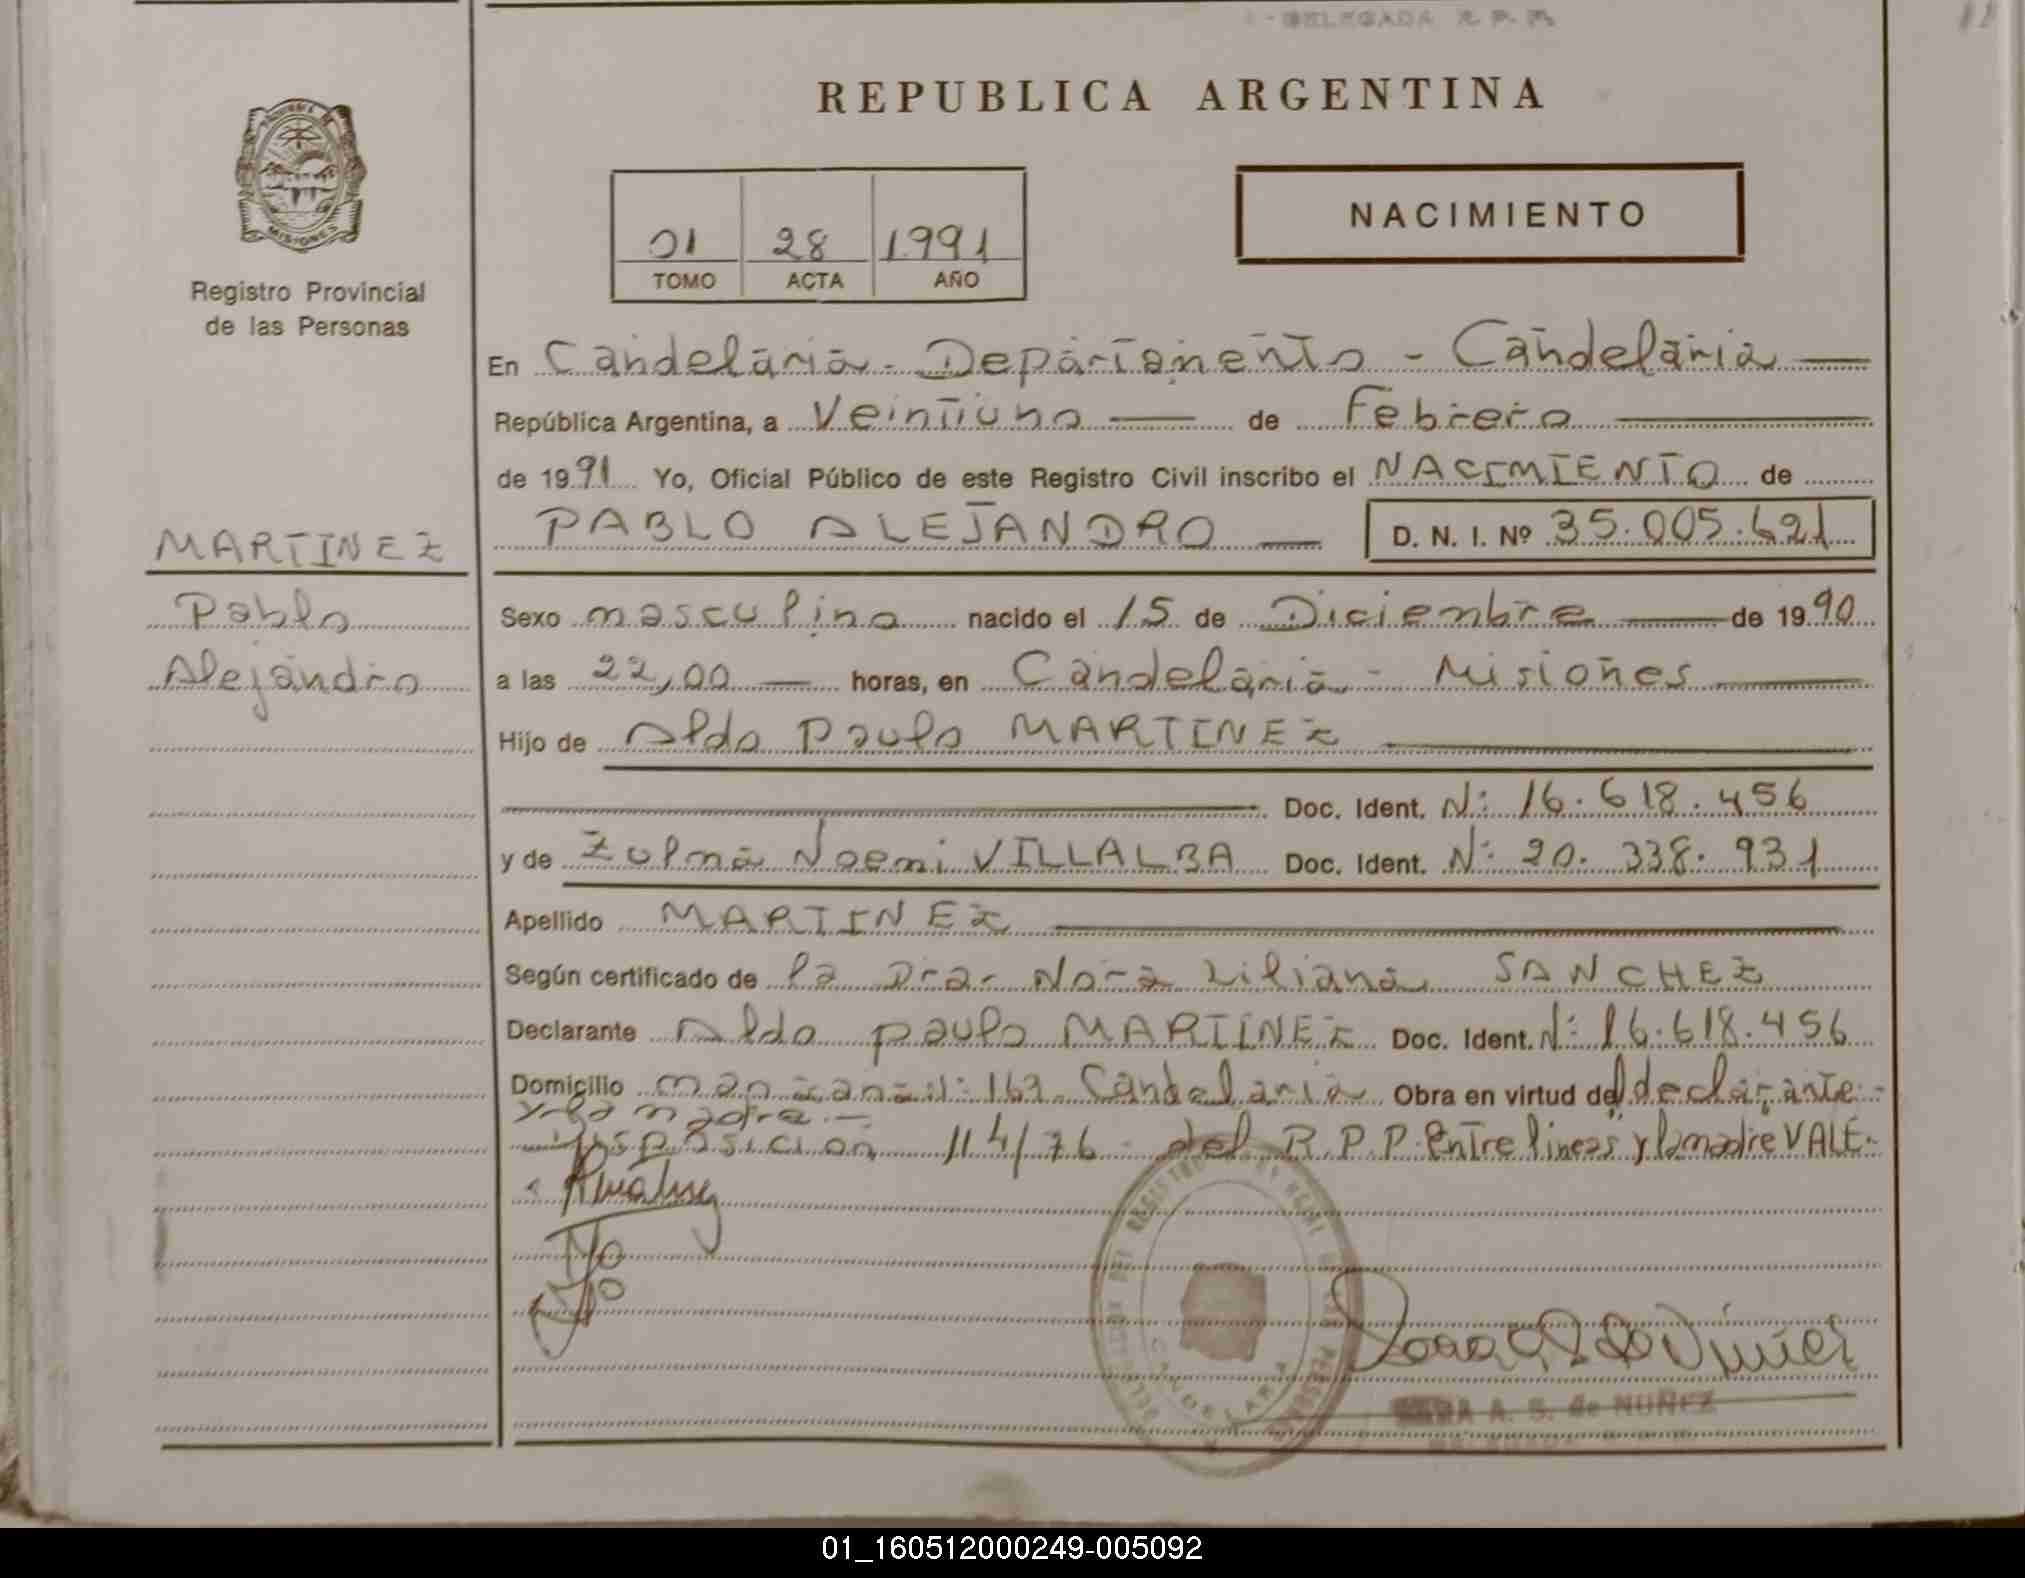 DELEGADA R. P. P.
REPUBLICA ARGENTINA
PROVINCIA DE
MISIONES
Registro Provincial
de las Personas
01 28 1991
TOMO ACTA AÑO
NACIMIENTO
En Candelaria - Departamento - Candelaria
República Argentina, a Veintiuno de Febrero
de 1991 Yo, Oficial Público de este Registro Civil inscribo el NACIMIENTO de
PABLO ALEJANDRO D. N. I. Nº 35.005.621
MARTINEZ
Pablo
Alejandro
Sexo masculino nacido el 15 de Diciembre de 1990
a las 22,00 horas, en Candelaria - Misiones
Hijo de Aldo Paulo MARTINEZ
Doc. Ident. Nº 16.618.456
y de Zulma Noemi VILLALBA Doc. Ident. Nº 20.338.931
Apellido MARTINEZ
Según certificado de la Dra. Nora Liliana SANCHEZ
Declarante Aldo paulo MARTINEZ Doc. Ident. Nº 16.618.456
Domicilio manzana Nº 169 Candelaria Obra en virtud del declarante -
y la madre. -
Disposicion 114/76 - del R.P.P. Entre lineas y la madre VALE.-
CANDELARIA
SARA A. S. de NUÑEZ
DELEGADA R. P. P.
01_160512000249-005092